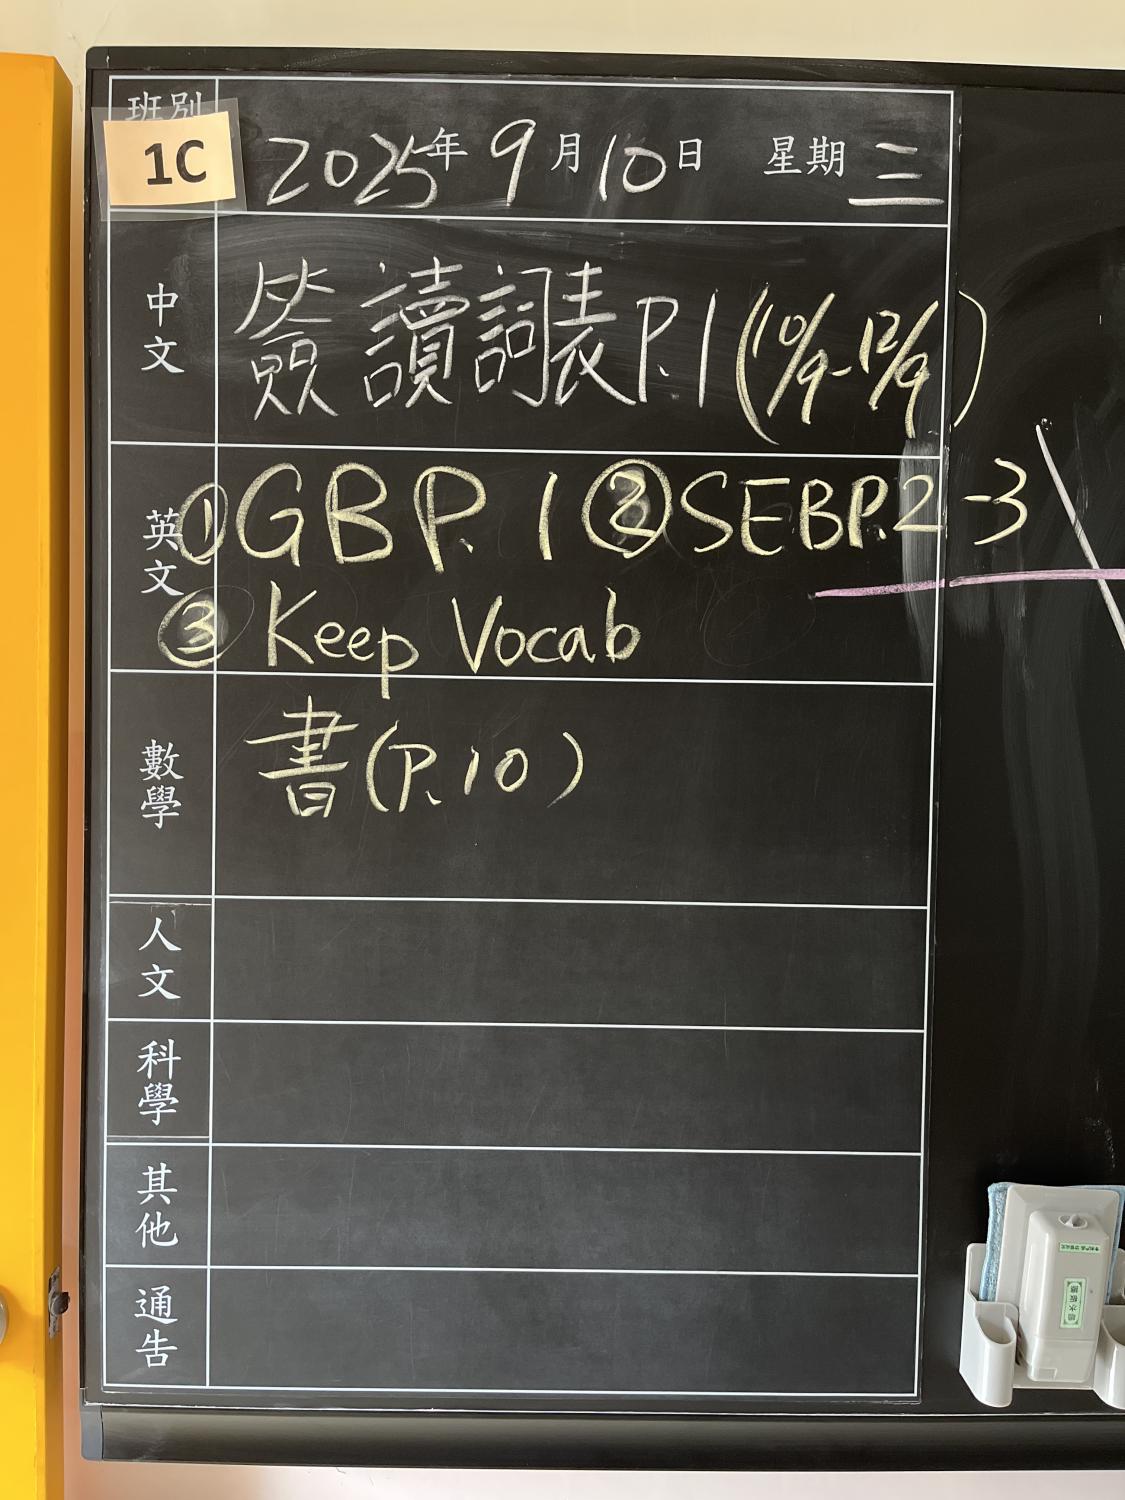 班別
1C
2025年9月10日 星期三
中文
簽讀詞表P.1(10/9-12/9)
英文
①GBP.1 ②SEBP.2-3
③Keep Vocab
數學
書(P.10)
人文
科學
其他
通告